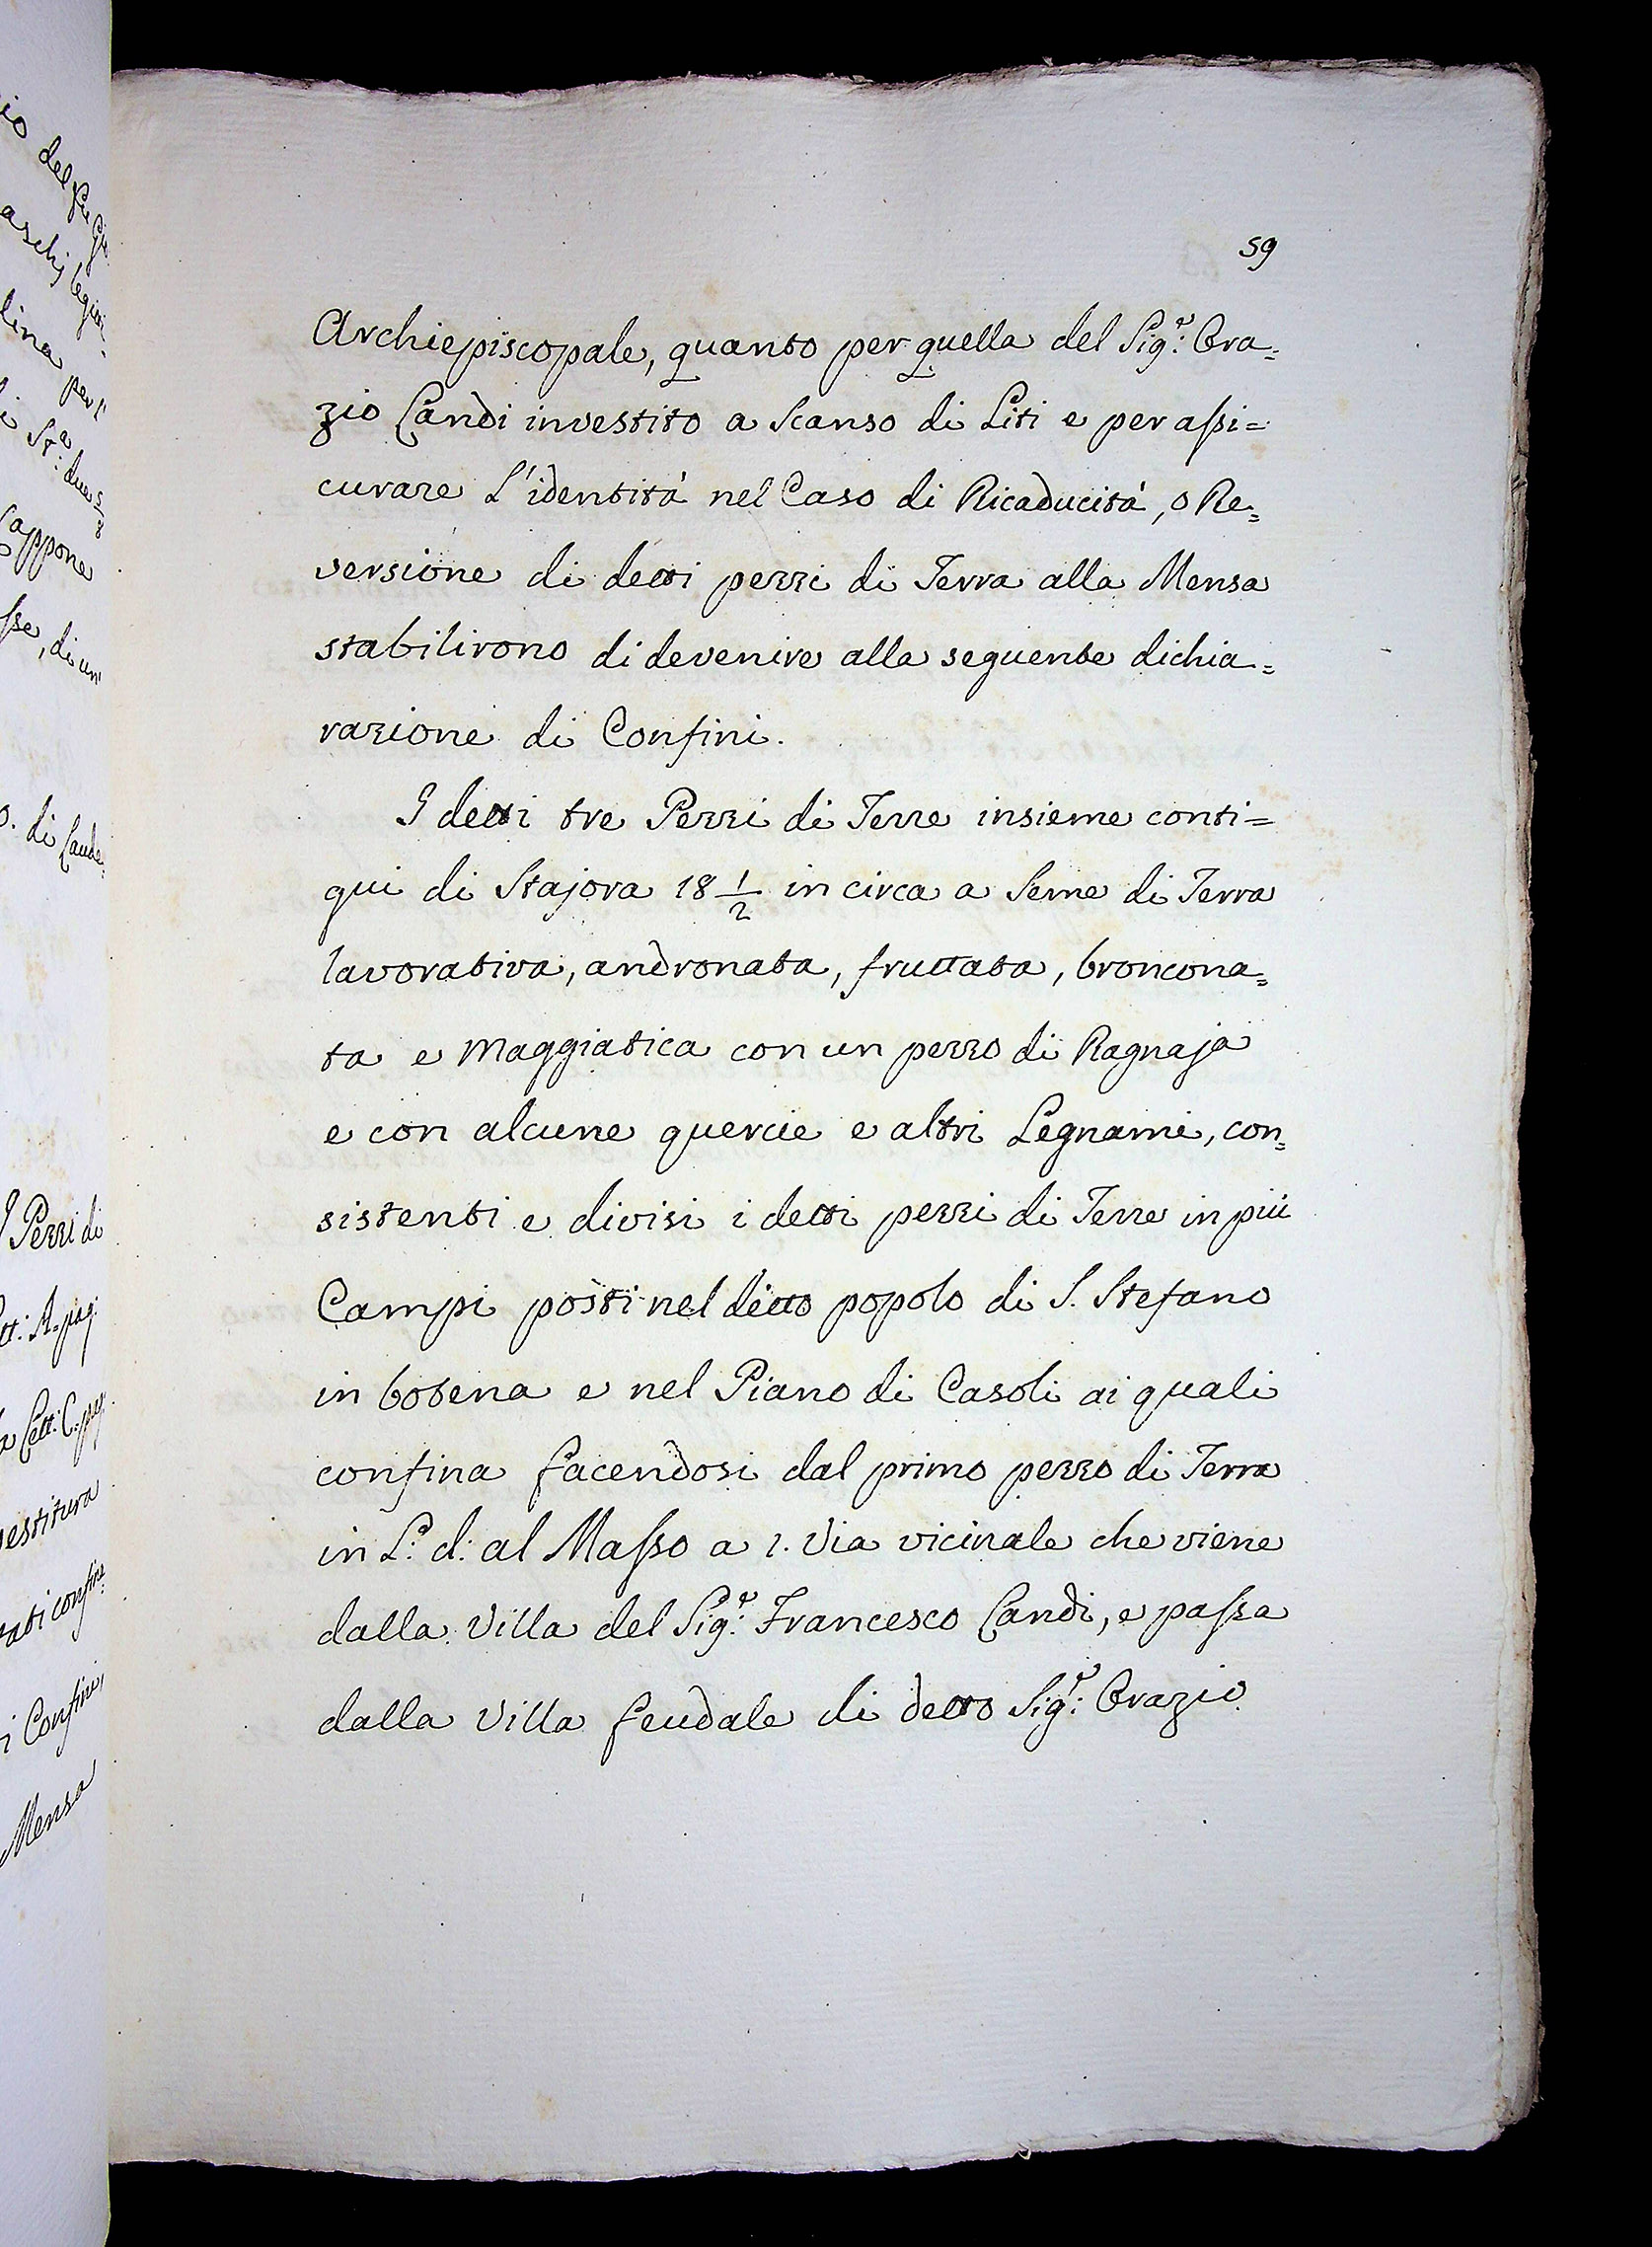 59
Archiepiscopale, quanto per quella del Sig.r Ora=
zio Landi investito a Scanso di Liti e per assi=
curare L'identità nel Caso di Ricaducità, o Re=
versione di detti pezzi di Terra alla Mensa
stabilirono di devenire alla seguente dichia=
razione di Confini.
I detti tre Pezzi di Terre insieme conti=
gui di Stajora 18 1/2 in circa a Seme di Terra
lavorativa, andronata, fruttata, broncona=
ta e Maggiatica con un pezzo di Ragnaja
e con alcune quercie e altri Legnami, con=
sistenti e divisi i detti pezzi di Terre in più
Campi posti nel detto popolo di S. Stefano
in botena e nel Piano di Casoli ai quali
confina facendosi dal primo pezzo di Terra
in L. d. al Masso a 1. Via vicinale che viene
dalla Villa del Sig.r Francesco Landi, e passa
dalla Villa feudale di detto Sig.r Orazio
Pezzi di
estitura
i Confini,
Mensa